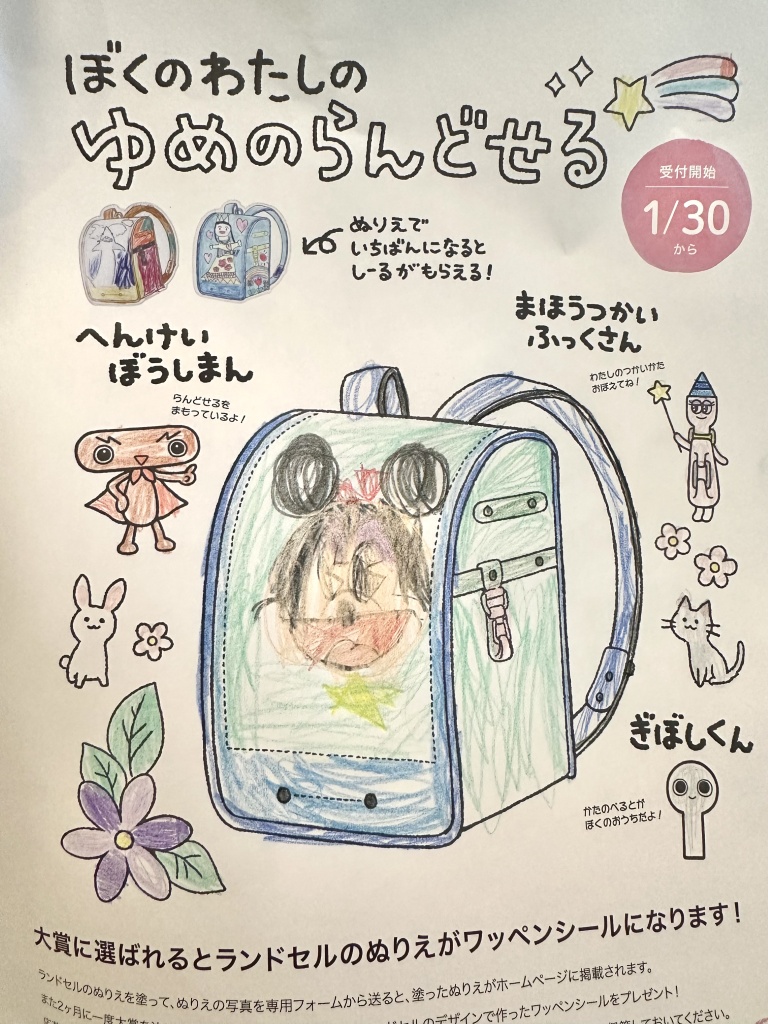 ぼくのわたしの
ゆめのらんどせる
受付開始
1/30
から
ぬりえで
いちばんになると
しーるがもらえる!
へんけい
ぼうしまん
らんどせるを
まもっているよ!
まほうつかい
ふっくさん
わたしのつかいかた
おぼえてね!
ぎぼしくん
かたのべるとが
ぼくのおうちだよ!
大賞に選ばれるとランドセルのぬりえがワッペンシールになります!
ランドセルのぬりえを塗って、ぬりえの写真を専用フォームから送ると、塗ったぬりえがホームページに掲載されます。
また2ヶ月に一度大賞を
ドセルのデザインで作ったワッペンシールをプレゼント!
しておいてください。